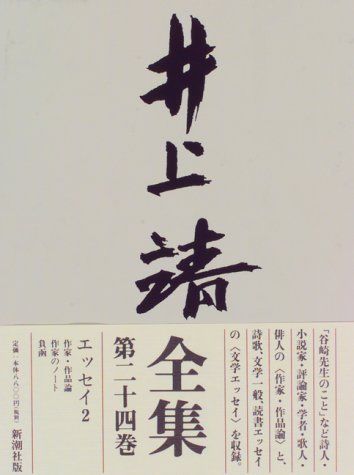 井上靖
全集
第二十四巻
「谷崎先生のこと」など詩人・
小説家・評論家・学者・歌人・
俳人の〈作家・作品論〉と、
詩歌、文学一般、読書エッセイ
の〈文学エッセイ〉を収録。
エッセイ2
作家・作品論
作家のノート
負函
定価・本体八八〇〇円(税別)
新潮社版